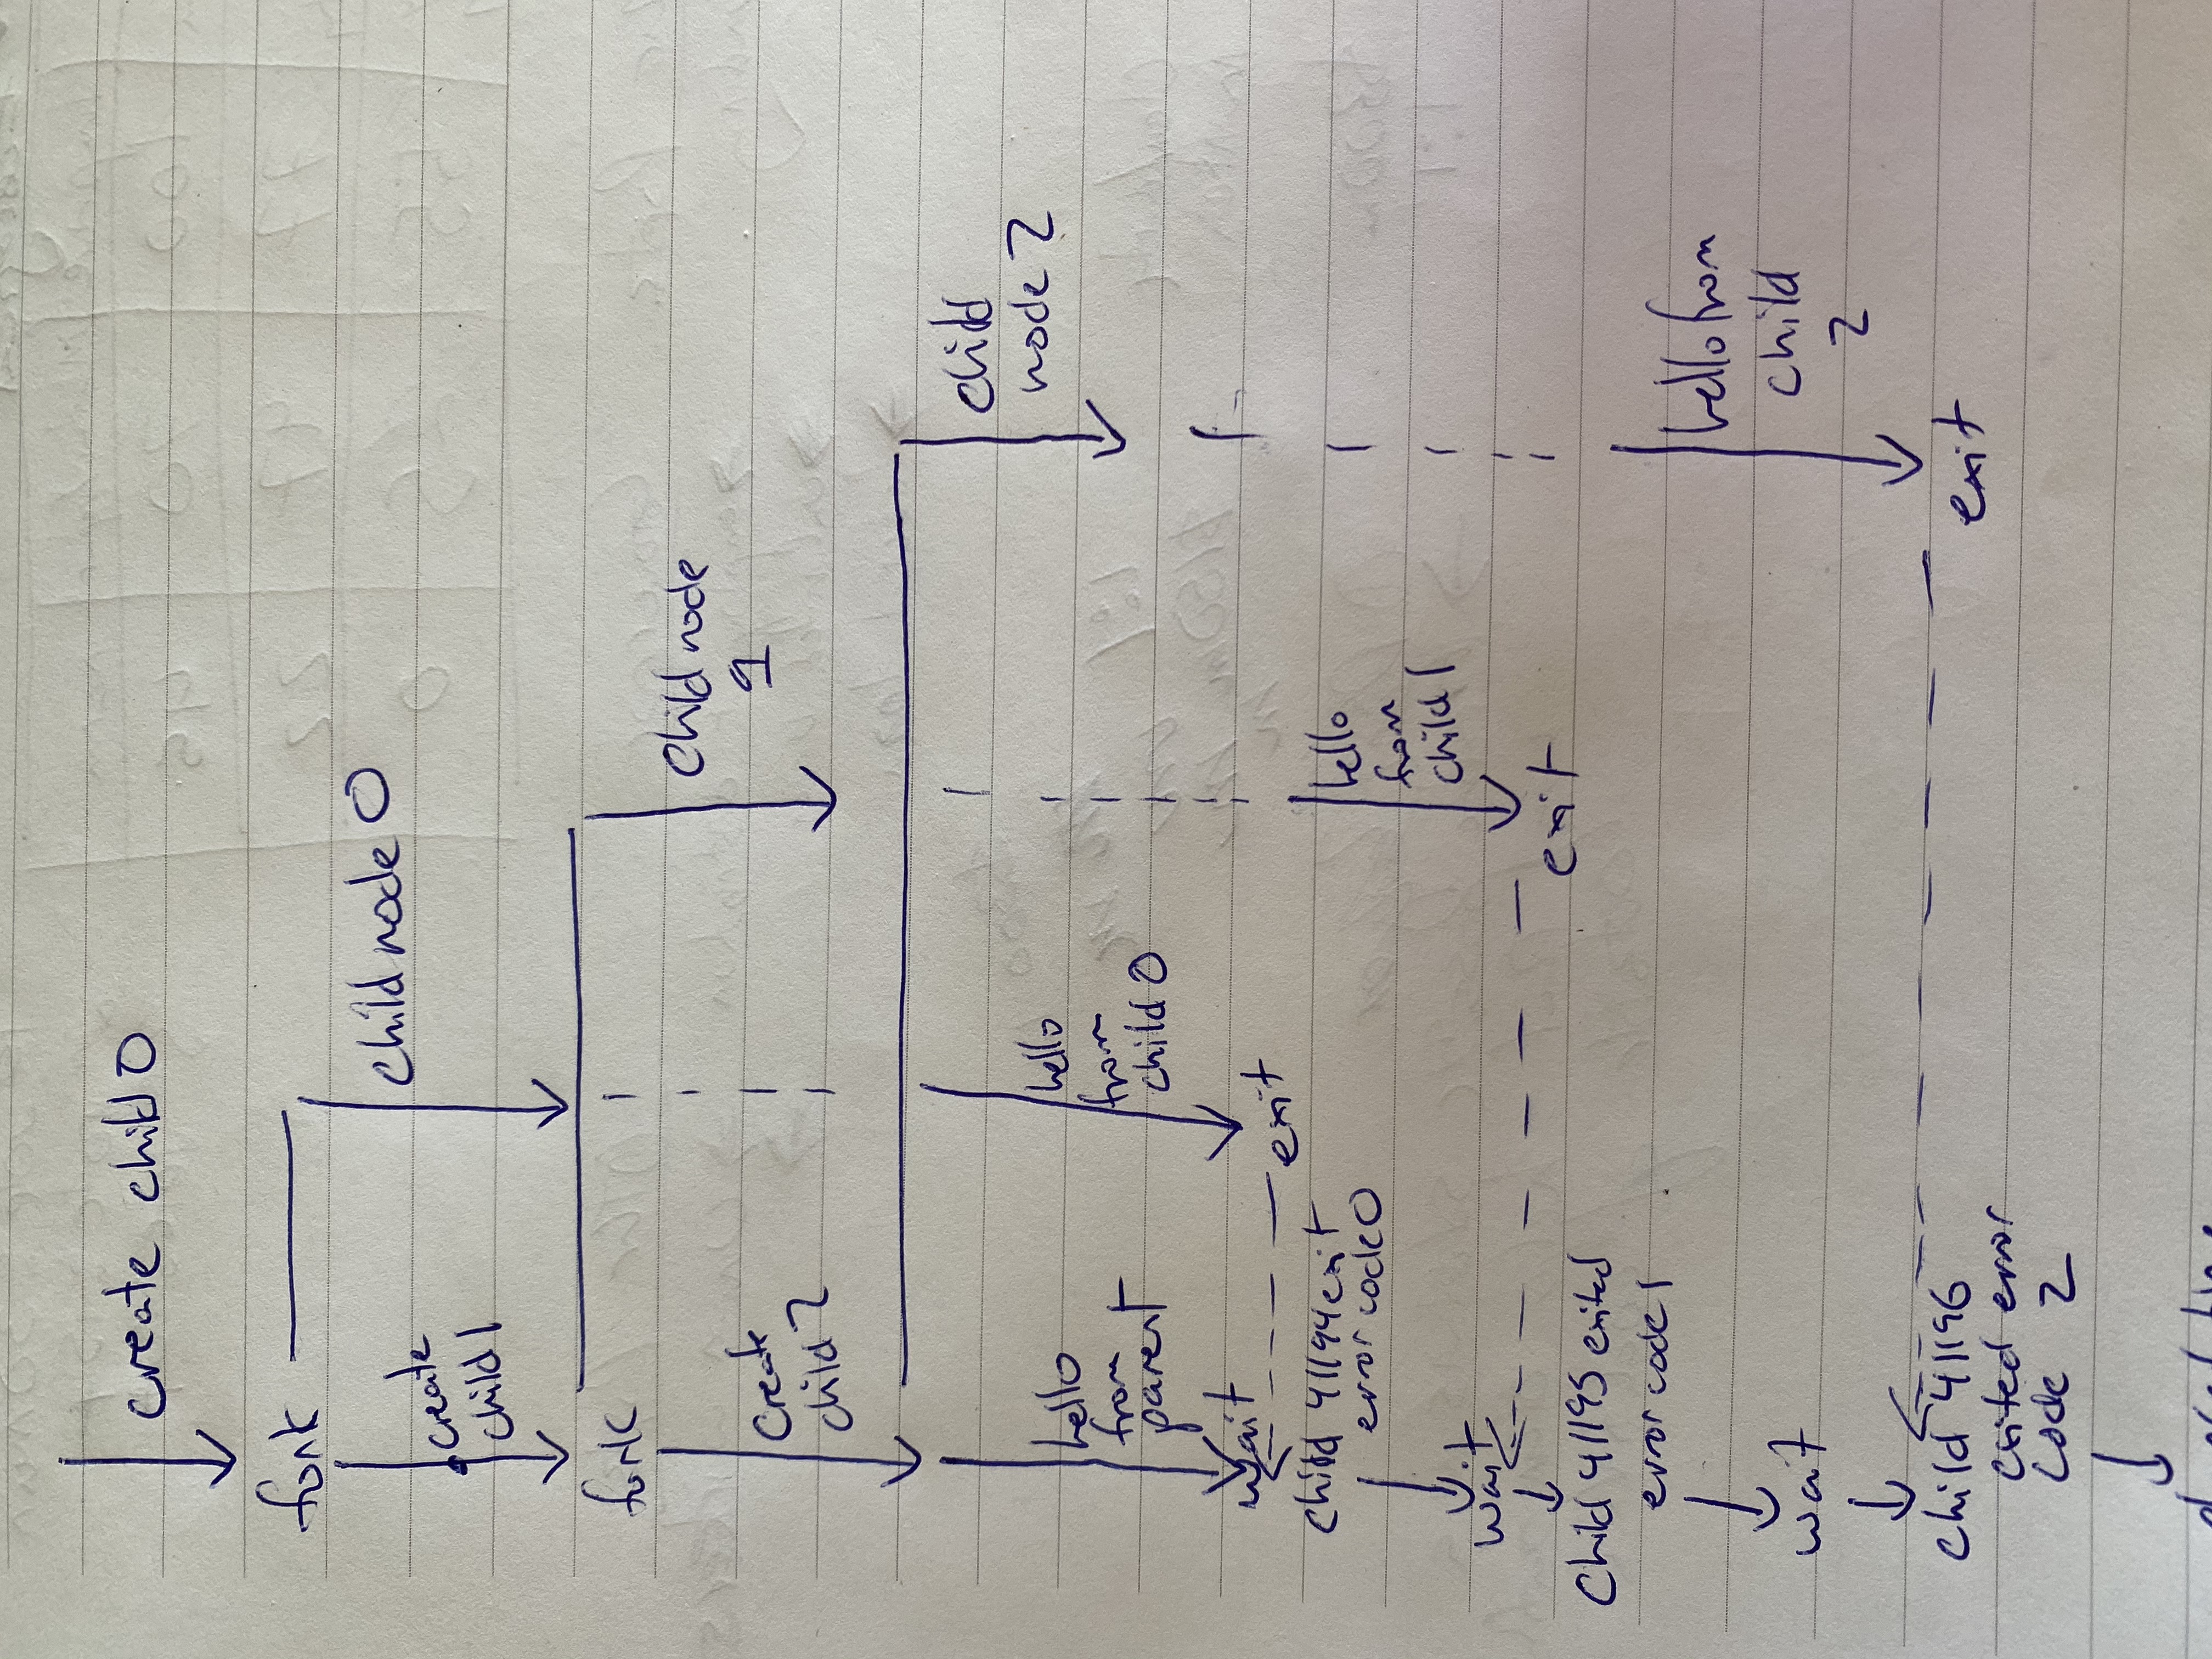 create child 0
fork
child node 0
create
child 1
fork
child node
1
create
child 2
child
node 2
hello
from
parent
hello
from
child 0
wait
exit
child 41194 exit
error code 0
hello
from
child 1
wait
exit
child 41195 exited
error code 1
hello from
child
2
wait
child 41196
exited error
code 2
exit